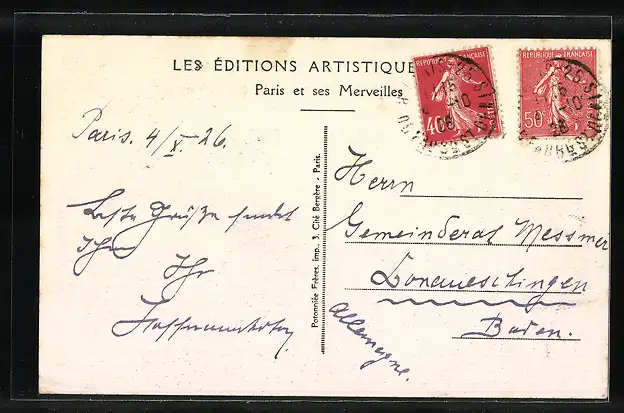 LES ÉDITIONS ARTISTIQUE
Paris et ses Merveilles
REPUBLIQUE FRANÇAISE
40c
POSTES
REPUBLIQUE FRANÇAISE
50c
Paris. 4/X. 26.
Beste Grüße sendet
Ihnen
Ihr
Potonniée Frères, Imp., 3, Cité Bergère - Paris.
Herrn
Gemeinderat Messmer
Donaueschingen
Baden.
Allemagne.